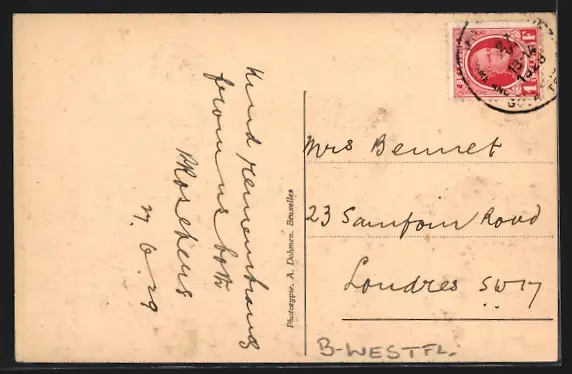 Kind remembrances
from us both
7. 6. 29
Phototypie, A. Dohmen, Bruxelles
Mrs Bennet
23 Sainfoin Road
Londres SW17
1 F
1929
B-WESTFL.